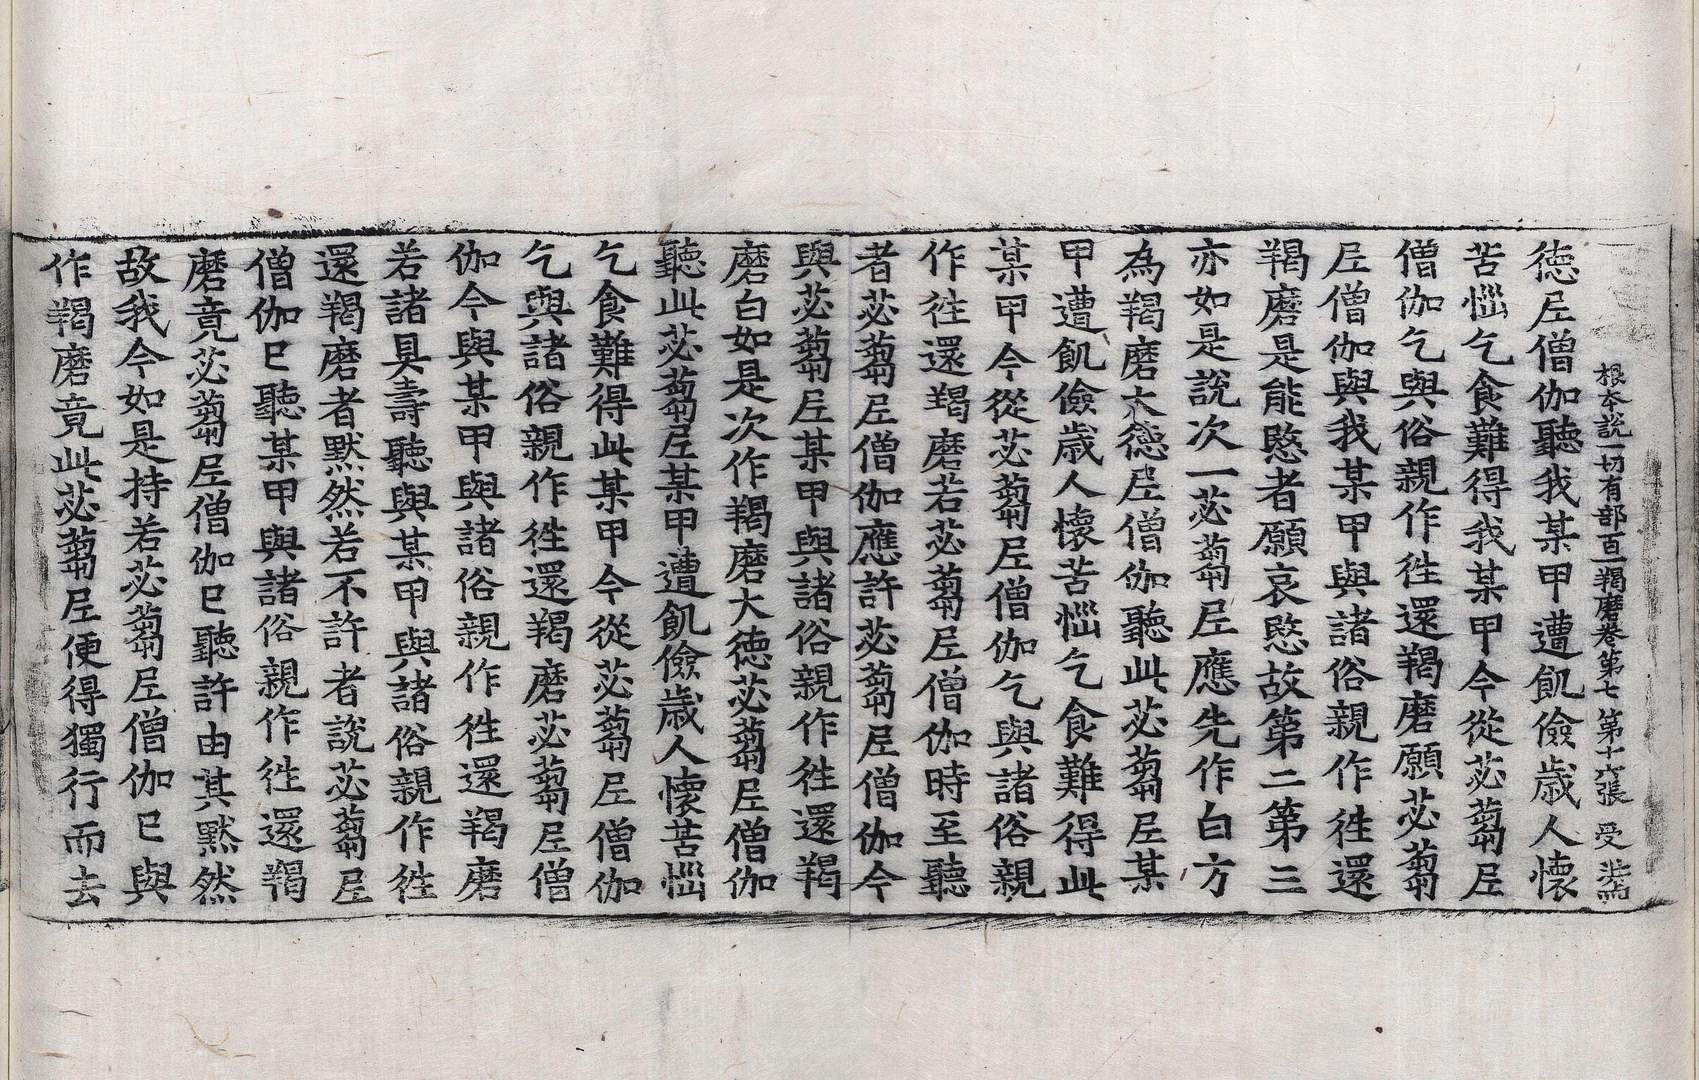 根本說一切有部百一羯磨卷第七 第十六張 受
德尼僧伽聽我某甲遭飢儉歲人懷
苦惱乞食難得我某甲今從苾蒭尼
僧伽乞與俗親作往還羯磨願苾蒭
尼僧伽與我某甲與諸俗親作往還
羯磨是能愍者願哀愍故第二第三
亦如是說次一苾蒭尼應先作白方
為羯磨大德尼僧伽聽此苾蒭尼某
甲遭飢儉歲人懷苦惱乞食難得此
某甲今從苾蒭尼僧伽乞與諸俗親
作往還羯磨若苾蒭尼僧伽時至聽
者苾蒭尼僧伽應許苾蒭尼僧伽今
與苾蒭尼某甲與諸俗親作往還羯
磨白如是次作羯磨大德苾蒭尼僧伽
聽此苾蒭尼某甲遭飢儉歲人懷苦惱
乞食難得此某甲今從苾蒭尼僧伽
乞與諸俗親作往還羯磨苾蒭尼僧
伽今與某甲與諸俗親作往還羯磨
若諸具壽聽與某甲與諸俗親作往
還羯磨者默然若不許者說苾蒭尼
僧伽已聽某甲與諸俗親作往還羯
磨竟苾蒭尼僧伽已聽許由其默然
故我今如是持若苾蒭尼僧伽已與
作羯磨竟此苾蒭尼便得獨行而去